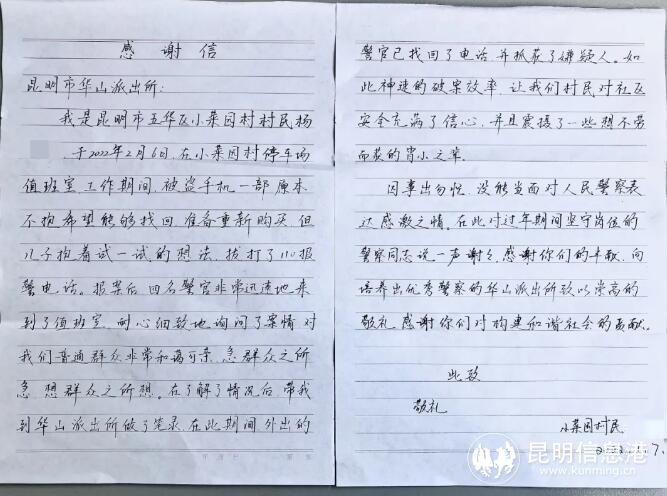 感谢信
昆明市华山派出所:
我是昆明市五华区小菜园村村民杨
于2022年2月6日,在小菜园村停车场
值班室工作期间,被盗手机一部原本
不抱希望能够找回,准备重新购买,但
儿子抱着试一试的想法,拨打了110报
警电话。报案后,四名警官非常迅速地来
到了值班室,耐心细致地询问了案情对
我们普通群众非常和蔼可亲,急群众之所
急,想群众之所想。在了解了情况后,带我
到华山派出所做了笔录,在此期间外出的
警官已找回了电话,并抓获了嫌疑人。如
此神速的破案效率,让我们村民对社区
安全充满了信心,并且震摄了一些想不劳
而获的宵小之辈。
因事出匆忙,没能当面对人民警察表
达感激之情,在此对过年期间坚守岗位的
警察同志说一声谢谢,感谢你们的奉献,向
培养出优秀警察的华山派出所致以崇高的
敬礼,感谢你们对构建和谐社会的贡献。
此致
敬礼
小菜园村民
昆明信息港
www.kunming.cn